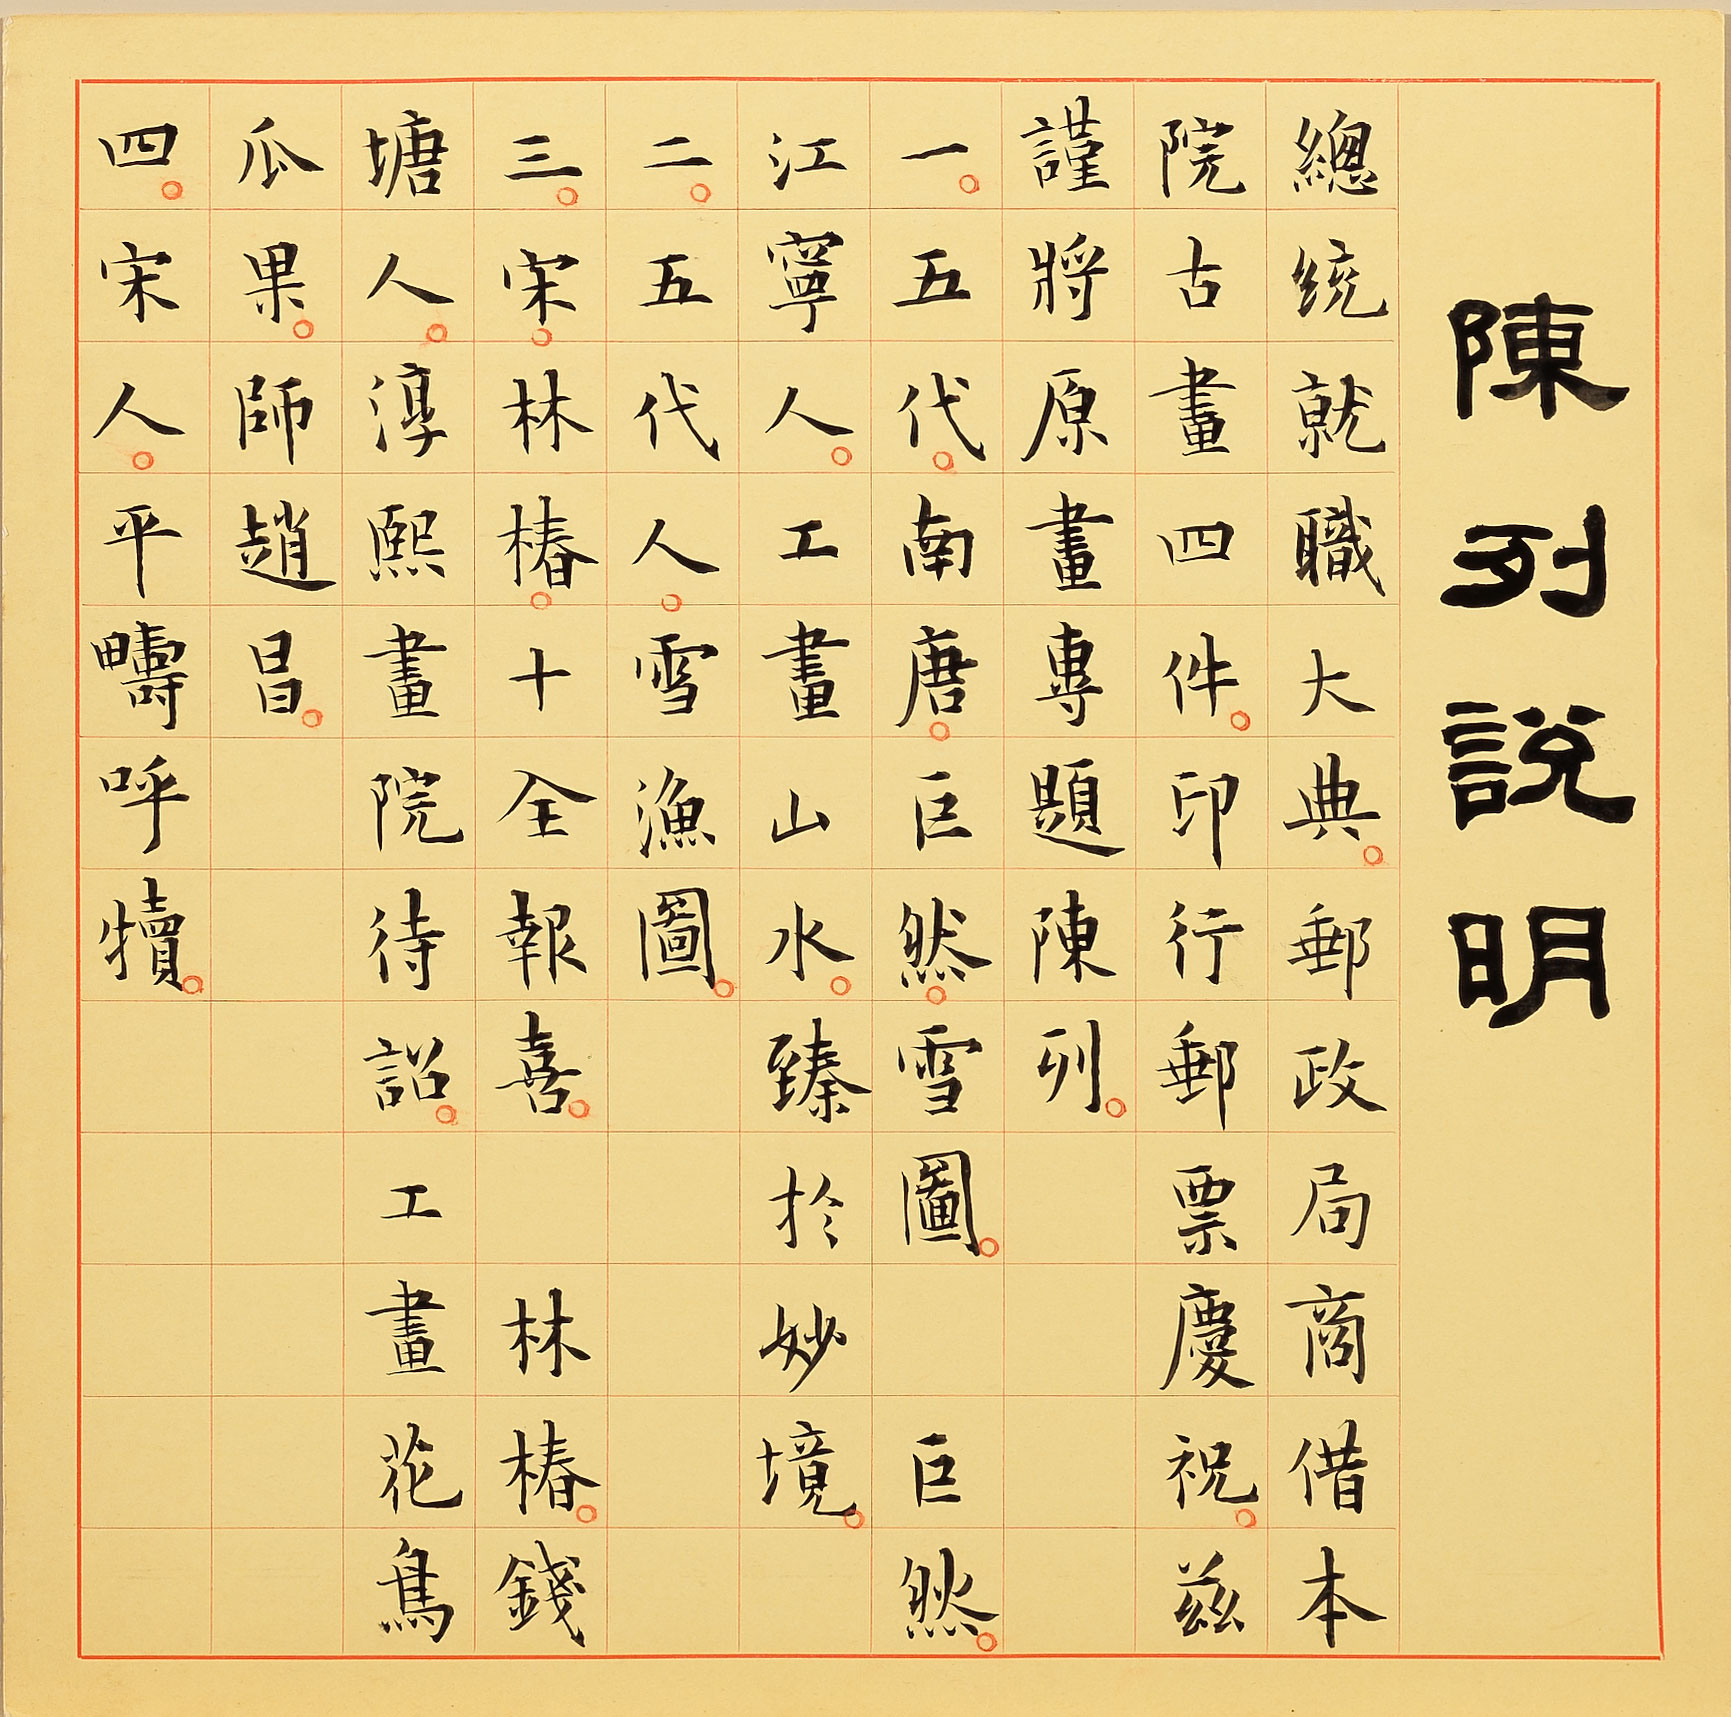 陳列說明
總統就職大典。郵政局商借本
院古畫四件。印行郵票慶祝。茲
謹將原畫專題陳列。
一。五代。南唐。巨然。雪圖。 巨然。
江寧人。工畫山水。臻於妙境。
二。五代人。雪漁圖。
三。宋。林椿。十全報喜。 林椿。錢
塘人。淳熙畫院待詔。工畫花鳥
瓜果。師趙昌。
四。宋人。平疇呼犢。